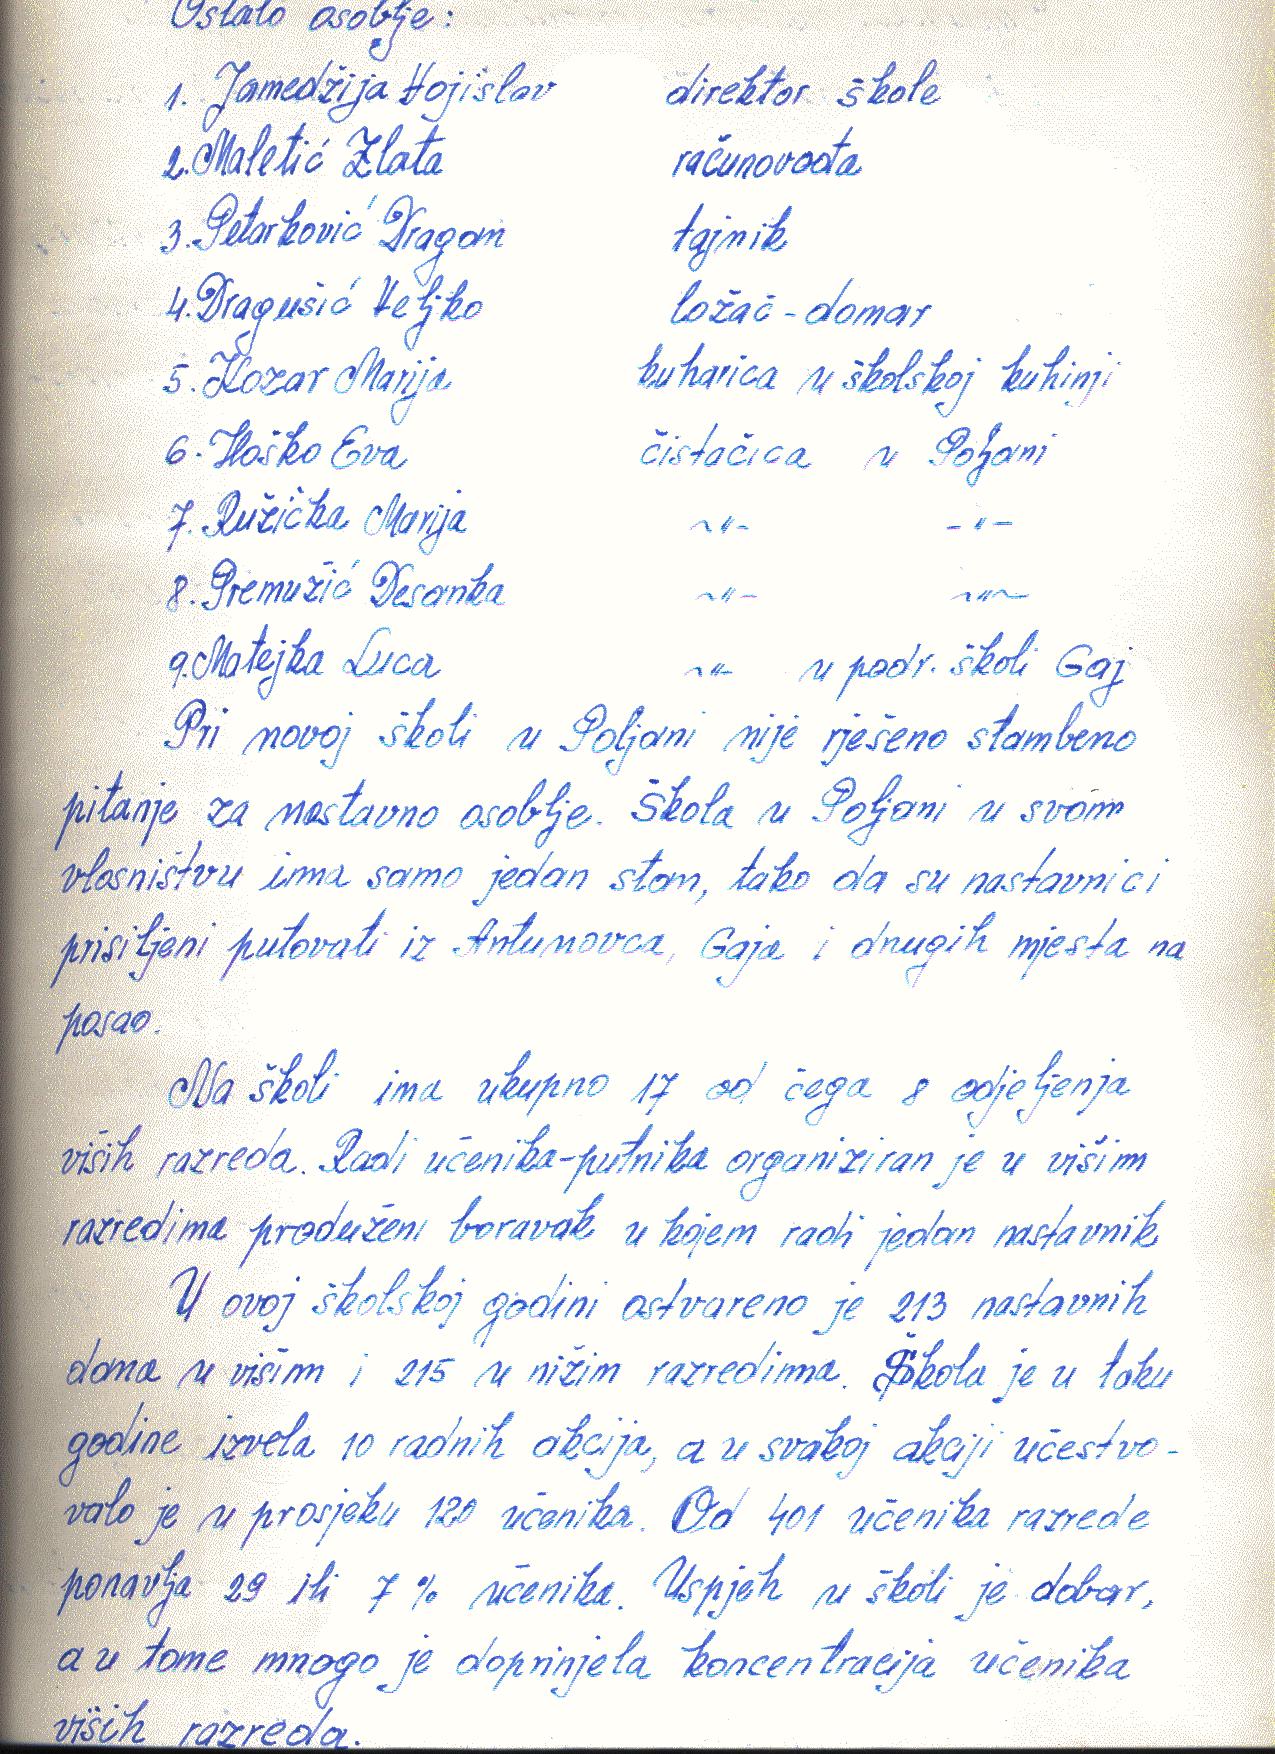 Ostalo osoblje:
1. Jamedžija Vojislav direktor škole
2. Maletić Zlata računovođa
3. Petarković Dragan tajnik
4. Dragušić Veljko ložač-domar
5. Kozar Marija kuharica u školskoj kuhinji
6. Hoško Eva čistačica u Poljani
7. Ružička Marija -"- -"-
8. Premužić Desanka -"- -"-
9. Matejka Luca -"- u podr. školi Gaj
Pri novoj školi u Poljani nije rješeno stambeno
pitanje za nastavno osoblje. Škola u Poljani u svom
vlasništvu ima samo jedan stan, tako da su nastavnici
prisiljeni putovati iz Antunovca, Gaja i drugih mjesta na
posao.
Na školi ima ukupno 17 od čega 8 odjeljenja
viših razreda. Radi učenika-putnika organiziran je u višim
razredima produženi boravak u kojem radi jedan nastavnik
U ovoj školskoj godini ostvareno je 213 nastavnih
dana u višim i 215 u nižim razredima. Škola je u toku
godine izvela 10 radnih akcija, a u svakoj akciji učestvo-
valo je u prosjeku 120 učenika. Od 401 učenika razrede
ponavlja 29 ili 7 % učenika. Uspjeh u školi je dobar,
a u tome mnogo je doprinjela koncentracija učenika
viših razreda.